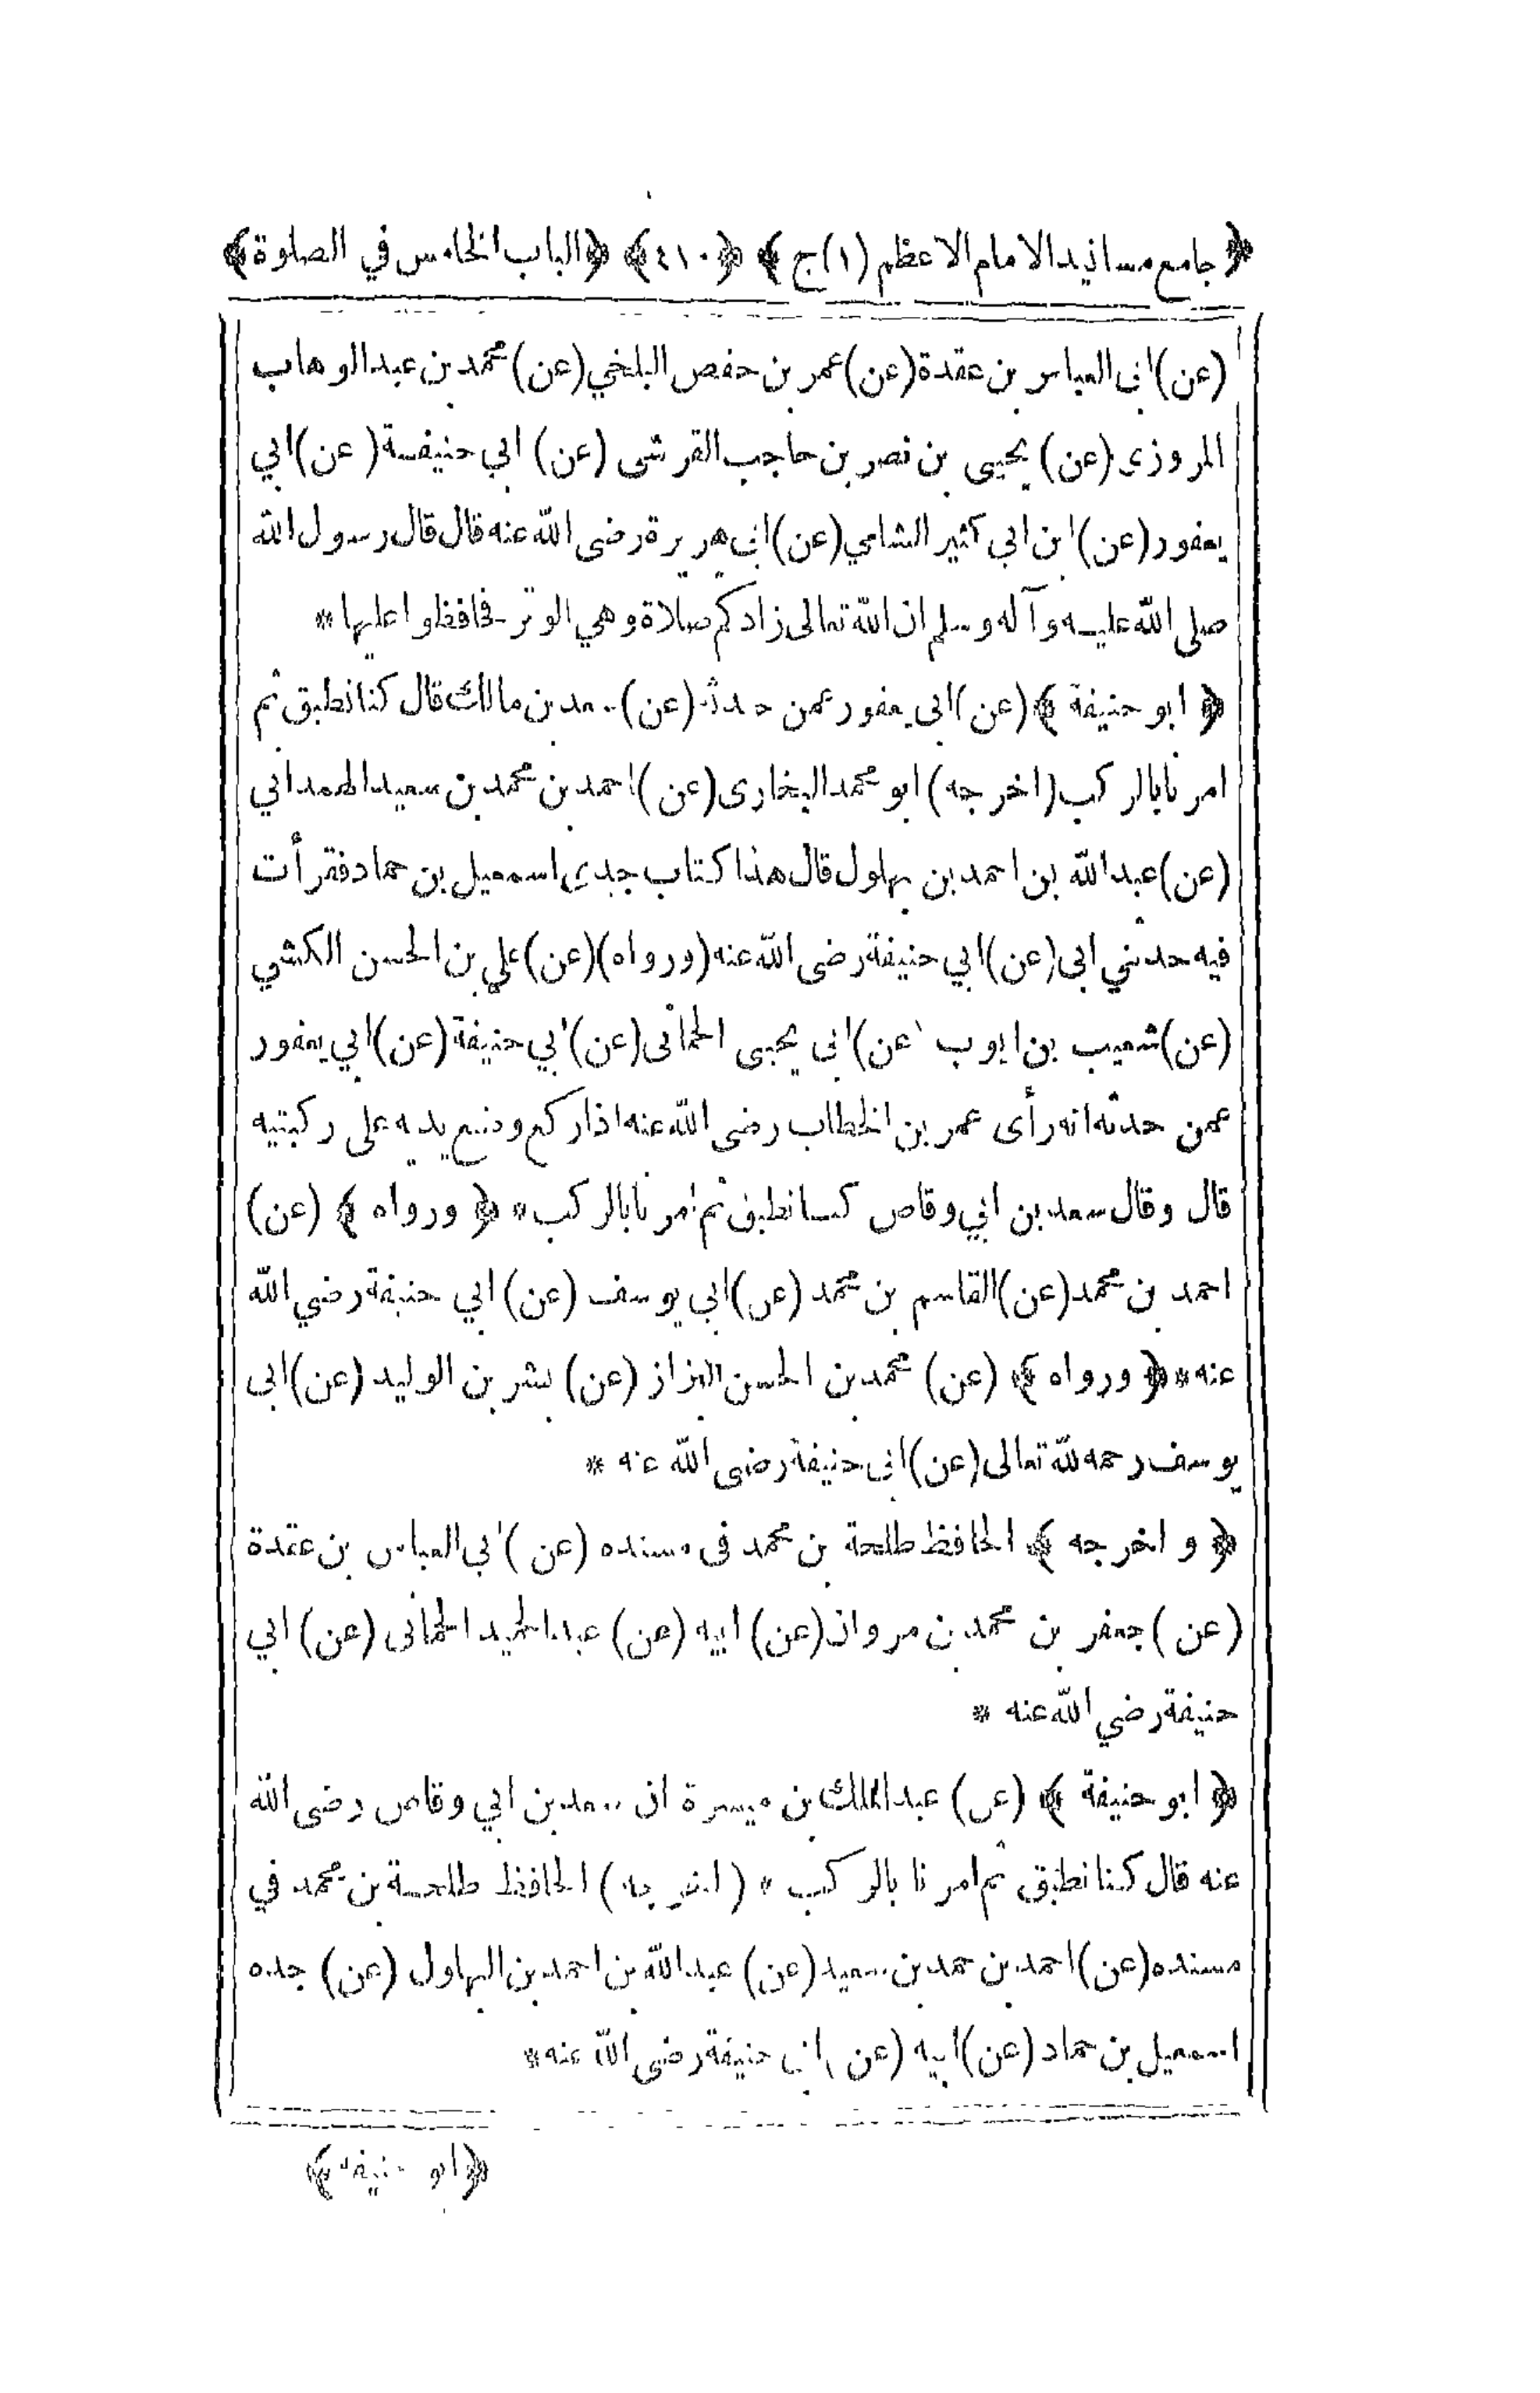 ﴿ جامع مسانيد الامام الاعظم (١) ج ﴾ ﴿٤١٠﴾ ﴿الباب الخامس في الصلوة﴾
(عن) ابى العباس بن عقدة (عن) عمر بن حفص البلخي (عن) محمد بن عبد الوهاب
المروزى (عن) يحيى بن نصر بن حاجب القرشى (عن) ابي حنيفة (عن) ابي
يعفور (عن) ابن ابي كثير الشامي (عن) ابى هريرة رضى الله عنه قال قال رسول الله
صلى الله عليه وآله وسلم ان الله تعالى زادكم صلاة وهي الوتر فحافظوا عليها *
﴿ ابو حنيفة ﴾ (عن) ابى يعفور عمن حدثه (عن) سعد بن مالك قال كنا نطبق ثم
امرنا بالركب (اخرجه) ابو محمد البخارى (عن) احمد بن محمد بن سعيد الهمداني
(عن) عبد الله بن احمد بن بهلول قال هذا كتاب جدى اسمعيل بن حماد فقرأت
فيه حدثني ابى (عن) ابي حنيفة رضى الله عنه (ورواه) (عن) علي بن الحسن الكشي
(عن) شعيب بن ايوب (عن) ابى يحيى الحمانى (عن) ابي حنيفة (عن) ابي يعفور
عمن حدثه انه رأى عمر بن الخطاب رضى الله عنه اذا ركع وضع يديه على ركبتيه
قال وقال سعد بن ابي وقاص كنا نطبق ثم امرنا بالركب * ﴿ ورواه ﴾ (عن)
احمد بن محمد (عن) القاسم بن محمد (عن) ابي يوسف (عن) ابي حنيفة رضي الله
عنه * ﴿ ورواه ﴾ (عن) محمد بن الحسن البزاز (عن) بشر بن الوليد (عن) ابى
يوسف رحمه لله تعالى (عن) ابى حنيفة رضى الله عنه *
﴿ و اخرجه ﴾ الحافظ طلحة بن محمد فى مسنده (عن) ابي العباس بن عقدة
(عن) جعفر بن محمد بن مروان (عن) ابيه (عن) عبد الحميد الحمانى (عن) ابي
حنيفة رضي الله عنه *
﴿ ابو حنيفة ﴾ (عن) عبد الملك بن ميسرة ان سعد بن ابي وقاص رضى الله
عنه قال كنا نطبق ثم امرنا بالركب * (اخرجه) الحافظ طلحة بن محمد في
مسنده (عن) احمد بن حمد بن سعيد (عن) عبد الله بن احمد بن البهلول (عن) جده
اسمعيل بن حماد (عن) ابيه (عن) ابى حنيفة رضى الله عنه *
﴿ابو حنيفة﴾